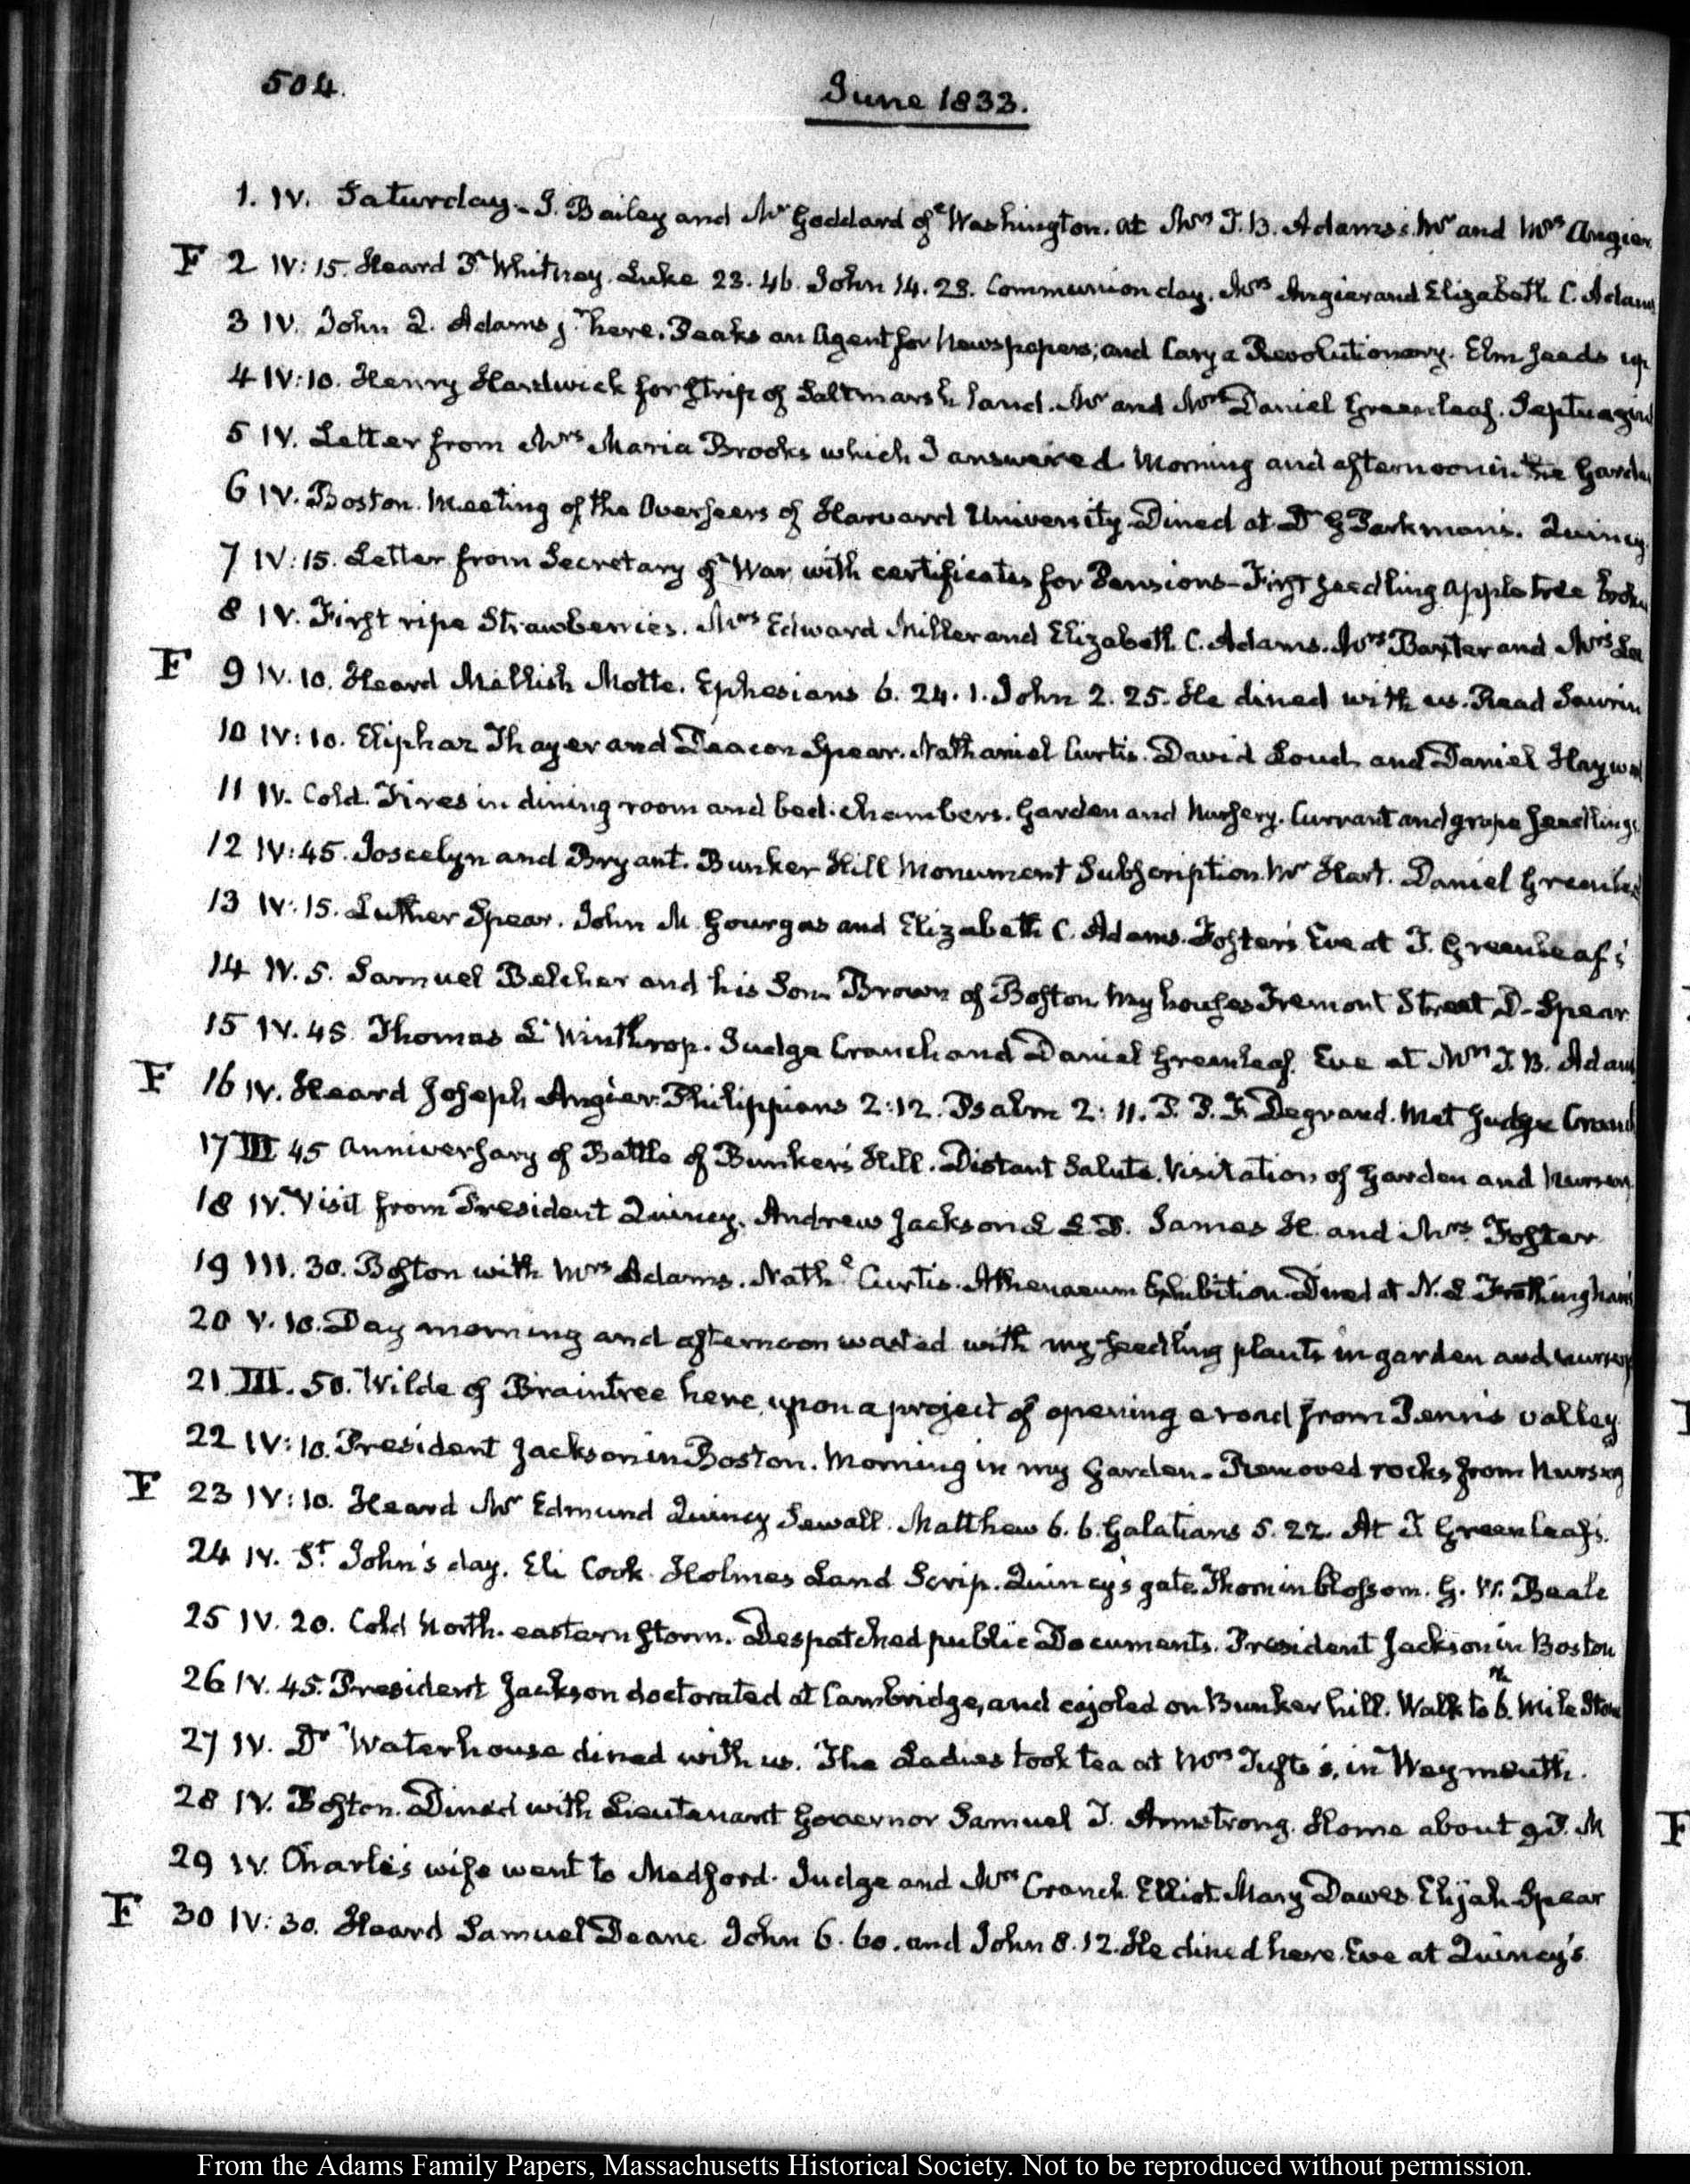 504.
June 1833.
1. IV. Saturday. J. Bailey and Mr Goddard of Washington. at Mrs T. B. Adams's. Mr and Mrs Angier
F 2 IV:15. Heard P. Whitney. Luke 23. 46. John 14. 28. Communion day. Mrs Angier and Elizabeth C. Adams
3 IV. John Q. Adams jr here. Beaks an Agent for Newspapers; and Cary a Revolutionary. Elm seeds up
4 IV:10. Henry Hardwick for strip of Saltmarsh land. Mr and Mrs Daniel Greenleaf.
5 IV. Letter from Mrs Maria Brooks which I answered Morning and afternoon in the Garden
6 IV. Boston. Meeting of the Overseers of Harvard University Dined at Dr G Parkman's. Quincy.
7 IV:15. Letter from Secretary of War with certificates for Pensions—First seedling apple tree
8 IV. First ripe Strawberries. Mrs Edward Miller and Elizabeth C. Adams. Mrs Baxter and Mrs
F 9 IV. 10. Heard Mellish Motte. Ephesians 6. 24. 1. John 2. 25. He dined with us. Read Saurin
10 IV:10. Eliphaz Thayer and Deacon Spear. Nathaniel Curtis. David Loud and Daniel Hayward
11 IV. Cold. Fires in dining room and bed. chambers. Garden and Nursery. Currant and grape seedlings
12 IV:45. Joscelyn and Bryant. Bunker Hill Monument Subscription. Mr Hart. Daniel Greenleaf
13 IV:15. Luther Spear. John M Gourgas and Elizabeth C. Adams. Foster's Eve at T. Greenleaf's
14 IV. 5. Samuel Belcher and his Son. Brown of Boston my houses Tremont Street D. Spear
15 IV. 45. Thomas L Winthrop. Judge Cranch and Daniel Greenleaf. Eve at Mrs T. B. Adams
F 16 IV. Heard Joseph Angier. Philippians 2:12. Psalm 2:11. P. P. F. Degrand. Met Judge Cranch
17 III 45 Anniversary of Battle of Bunker's Hill. Distant Salute. Visitation of Garden and Nursery
18 IV. Visit from President Quincy. Andrew Jackson L L D. James H. and Mrs Foster
19 III. 30. Boston with Mrs Adams. Nathl Curtis. Athenaeum Exhibition Dined at N. L Frothingham's
20 V. 10. Day morning and afternoon wasted with my seedling plants in garden and nursery
21. III. 50. Wilde of Braintree here, upon a project of opening a road from Penn's valley
22 IV:10. President Jackson in Boston. Morning in my Garden. Removed rocks from Nursery
F 23 IV:10. Heard Mr Edmund Quincy Sewall. Matthew 6. 6. Galatians 5. 22. At T. Greenleaf's.
24 IV. St John's day. Eli Cook Holmes Land Scrip. Quincy's gate. Thorn in blossom. G. W. Beale
25 IV. 20. Cold North. eastern storm. Despatched public Documents. President Jackson in Boston
26 IV. 45. President Jackson doctorated at Cambridge, and cajoled on Bunker hill. Walk to 6.th Mile Stone
27 IV. Dr Waterhouse dined with us. The Ladies took tea at Mrs Tufts's, in Weymouth.
28 IV. Boston. Dined with Lieutenant Governor Samuel T. Armstrong. Home about 9 P. M
29 IV. Charles's wife went to Medford. Judge and Mrs Cranch. Elliot. Mary Dawes. Elijah Spear
F 30 IV:30. Heard Samuel Deane. John 6. 60. and John 8. 12. He dined here. Eve at Quincy's
From the Adams Family Papers, Massachusetts Historical Society. Not to be reproduced without permission.